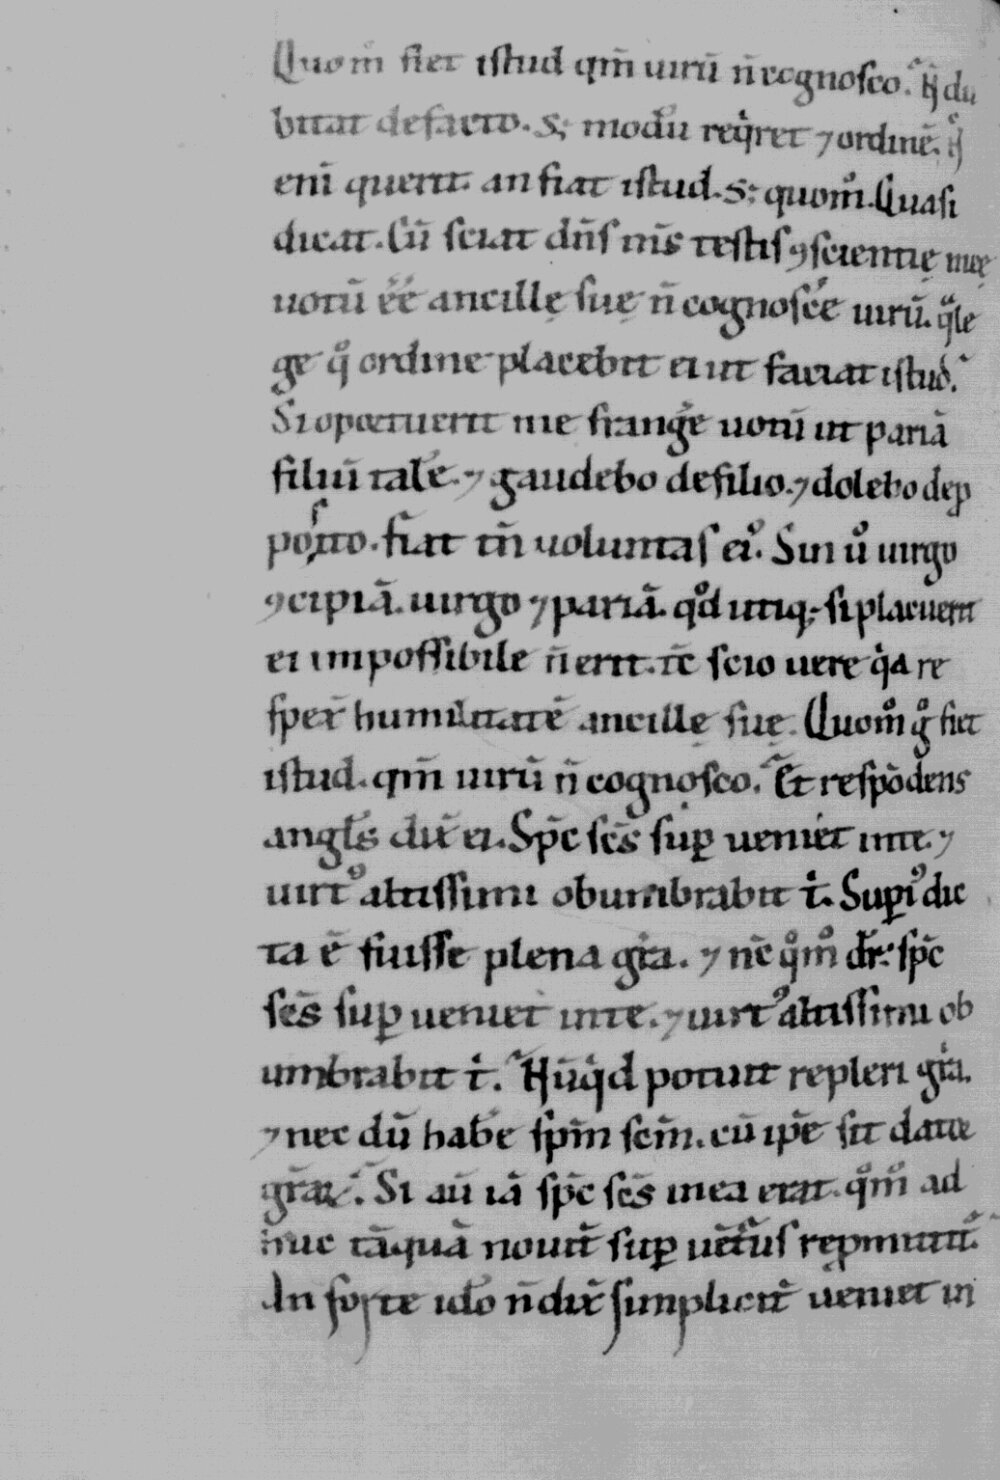 Quom̊ fiet istud qm̄ uirū n̄ cognosco. H̄ du
bitat de facto. s; modū req̇ret ⁊ ordinē. H̄
eni querit. an fiat istud. s; quom̊. Quasi
dicat. Cū sciat dn̄s m̄s testis ꝯscientię meę
uotū ēē ancillę suę n̄ cognosce uirū. q̊ le
ge q̊ ordine placebit ei ut faciat istud.
Si oportuerit me frange uotū ut pariā
filiū tale. ⁊ gaudebo de filio. ⁊ dolebo de ꝓ
posito. fiat tn̄ uoluntas ei᾿. Sin ů uirgo
ꝯcipiā. uirgo ⁊ pariā. qd̊ utiq; si placuerit
ei impossibile n̄ erit. tc̄ scio uere q̇a re
spex̄ humilitatē ancillę suę. Quom̊ g̊ fiet
istud. qm̄ uirū n̄ cognosco. Et respōdens
angl̄s dix̄ ei. Sp̄c sc̄s suꝑ ueniet in te. ⁊
uirt᾿ altissimi obumbrabit t̄. Suꝑi᾿ dic
ta ē fuisse plena gr̄a. ⁊ nc̄ q̊m̊ dr̄: sp̄c
sc̄s suꝑ ueniet in te. ⁊ uirt᾿ altissimi ob
umbrabit t̄. Nūq̇d potuit repleri gr̄a.
⁊ nec dū habe sp̄m sc̄m. cū ip̄e sit dator
gr̄aꝝ. Si aū iā sp̄c sc̄s in ea erat. q̊m̊ ad
huc tāquā nouit̄ suꝑ uēt̄us repmittit̄.
An forte ido n̄ dix̄ simplicit̄ ueniet in